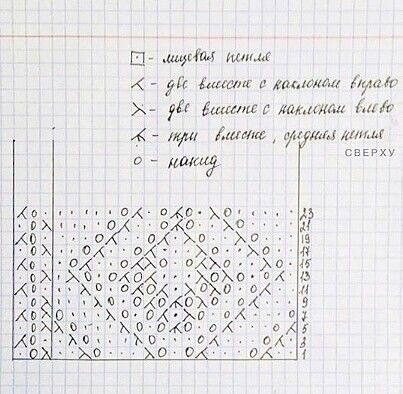 ⊡ - лицевая петля
⋌ - две вместе с наклоном вправо
⋋ - две вместе с наклоном влево
- три вместе, средняя петля
СВЕРХУ
О - накид
23
21
19
17
15
13
11
9
7
5
3
1